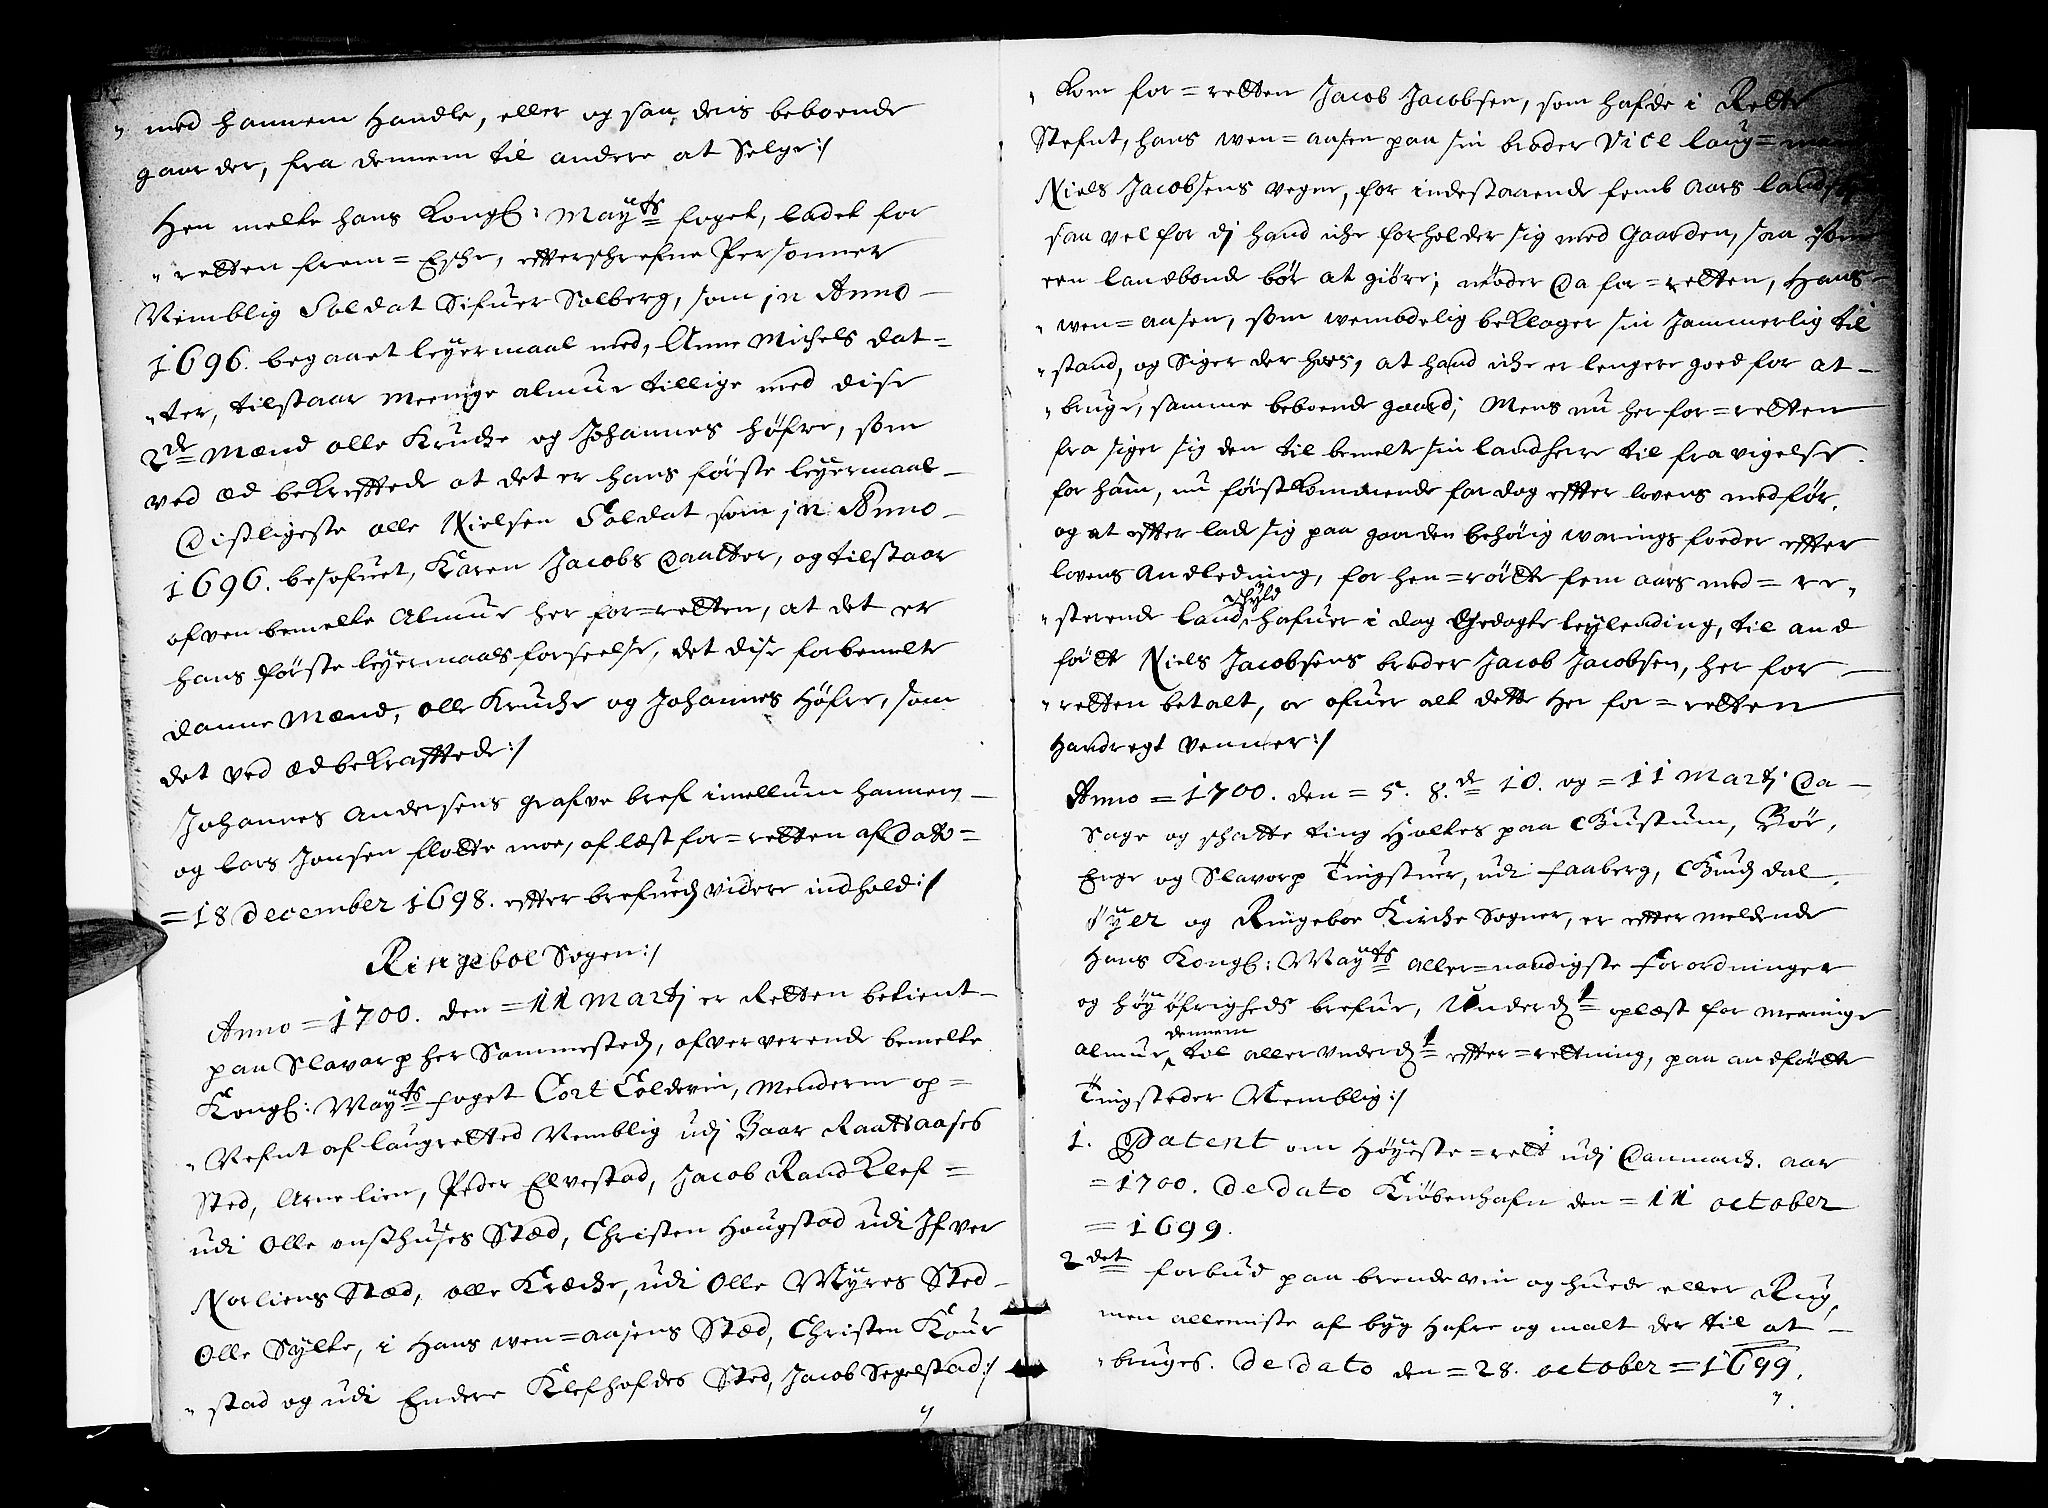 " med hannem Handle, eller og saa deris beboende
gaarder, fra dennem til andere at Selge:/
Hen melte hans Kongl: Mayts foget, ladet for
" retten frem= Eshe, effterschrefne Personner
Nemblig Soldat Sifuer Solberg, som jn Anno –
1696. begaaet leyermaal med, Anne Michels dat=
" ter, tilstaar meenige almue tillige med dise
2de Mænd olle Krucke og Johannes Høfre, som
ved æd bekrefftede at det er hans første leyermaal –
Disligeste olle Nielsen Soldat som jn Anno –
1696. besofuet, Karen Jacobs Daatter, og tilstaar
ofven bemelte Almue her for=retten, at det er
hans første leyermaals forseelse, det dise forbemelte
danne Mænd, olle Krucke og Johannes Høfre, som
det ved æd bekrafftede:/
Johannes Andersens grafve bref imellum hannem –
og lars Jonsen flotte moe, aflæst for=retten af Dato=
=18 December 1698. effter brefueds videre indhold:/
Ringeboe Sogen:/
Anno =1700. den =11 Martj er Retten betient –
paa Slavorp her Sammesteds, ofververende bemelte
Kongl: Mayts foget Cort Coldevin, Menderne op=
" Nefnt af laugretted Nemblig udj Baar Raattaases
Sted, Arne lien, Peder Elvestad, Jacob Rand Klef=
udi Olle onsthuses Stæd, Christen Haugstad udi Ifver
Norliens Stæd, olle Krucke, udi Olle Myres Sted –
Olle Sylte, i Hans wen=aasens Stæd, Christen Kour
" stad og udi Endere Klefhofdes Sted, Jacob Segelstad:/
" Kom for=retten Jacob Jacobsen, som hafde i Rette
Stefnt, hans wen=aasen paa sin broder Vice laug=
Niels Jacobsens vegne, for indestaaende femb Aars
saa vel for dj hand iche forholder sig med Gaarden, saa som
een landbonde bør at giøre; møder Da for=retten, Hans
" wen=aasen, som wemodelig beklager sin Jammerlig til
" stand, og Siger der hoes, at hand iche er lengere goed for at –
" bruge, samme beboende gaard; Mens nu her for=retten
fra siger sig den til bemelte sin landherre til fra vigelse.
for ham, nu førstkommende fardag effter lovens medfør.
og at effter lade sig paa gaarden behørig warings foeder effter
lovens Andledning, for hen=rørte fem aars med= re"
" sterende landschyld hafuer i dag Bedagte leylending, til and
førte Niels Jacobsens broder Jacob Jacobsen, her for –
" retten betalt, or ofuer alt dette Her for=retten
Handregt venner:/
Anno =1700. den =5. 8.de 10. og =11 Martj Da –
Sage og schatte ting Holtes paa Bustum, Bør,
Enge og Slavorp Tingstuer, udi faaberg, Guds dal,
Øyer og Ringeboe Kirche Sogner, er effter meldende
Hans Kongl: Mayts Aller=naadigste Forordninger
og høy øfrigheds brefue, Underdl oplæst for meenige
almue, dennem til aller underdl effter=rettning, paa andførte
Tingsteder Nemblig:/
1. Patent om Høyeste=rett udj Danmarck. aar
=1700. De dato Kiøbenhafn den =11 october
=1699.
2det forbud paa brendevin og huede eller Rug,
men alleeniste af byg Hafre og malt der til at –
" bruges. De dato den =28. october =1699.